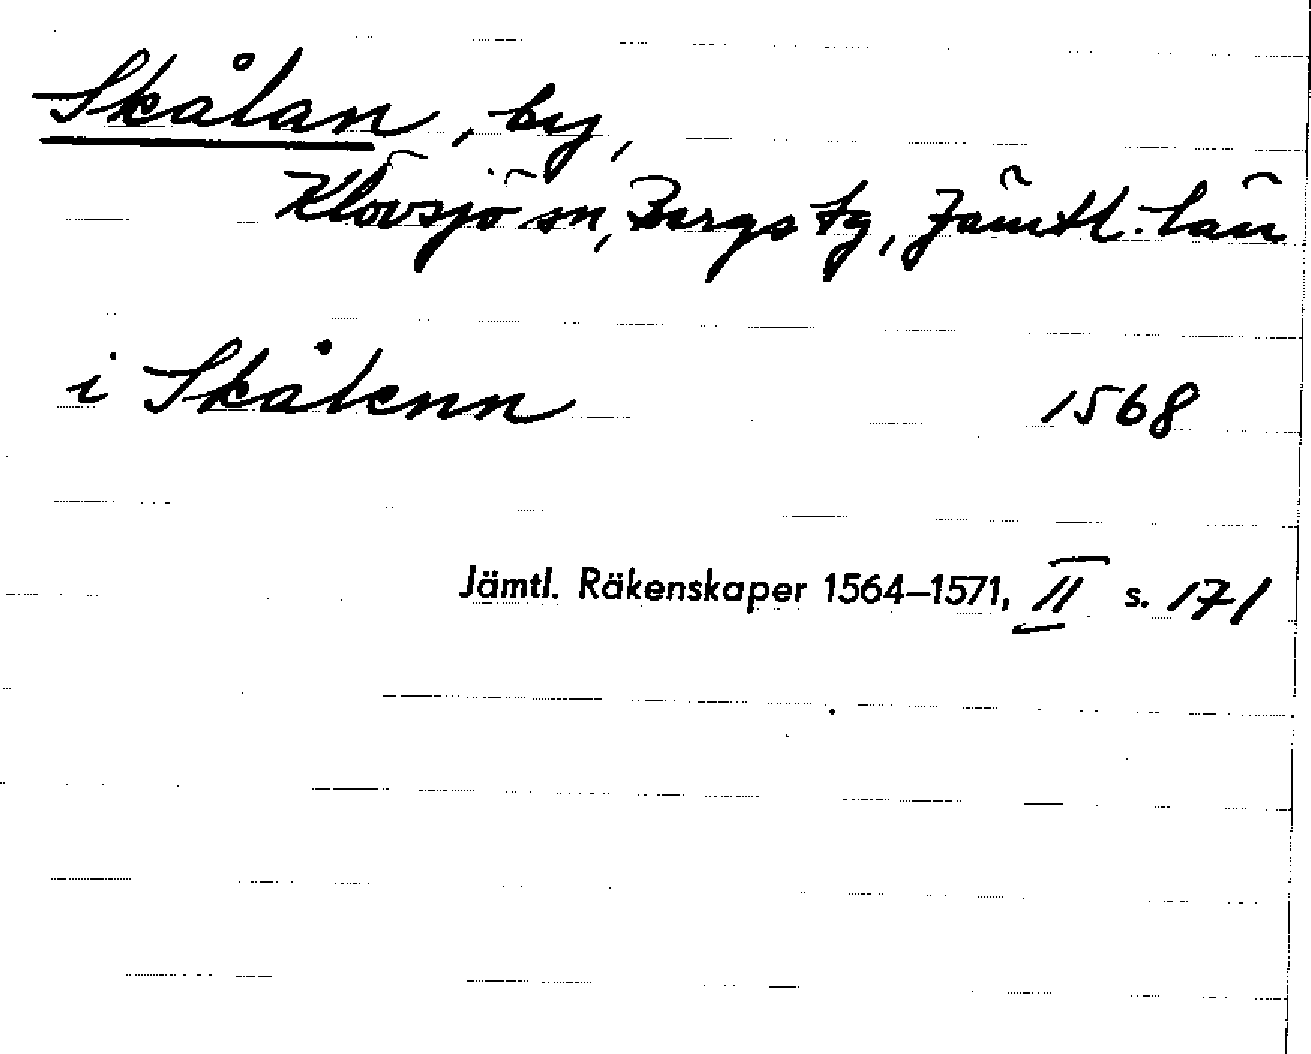 Skålan, by,
Klövsjö sn, Bergs tg, Jämtl. län
i Skålenn 1568
Jämtl. Räkenskaper 1564–1571, II s. 171